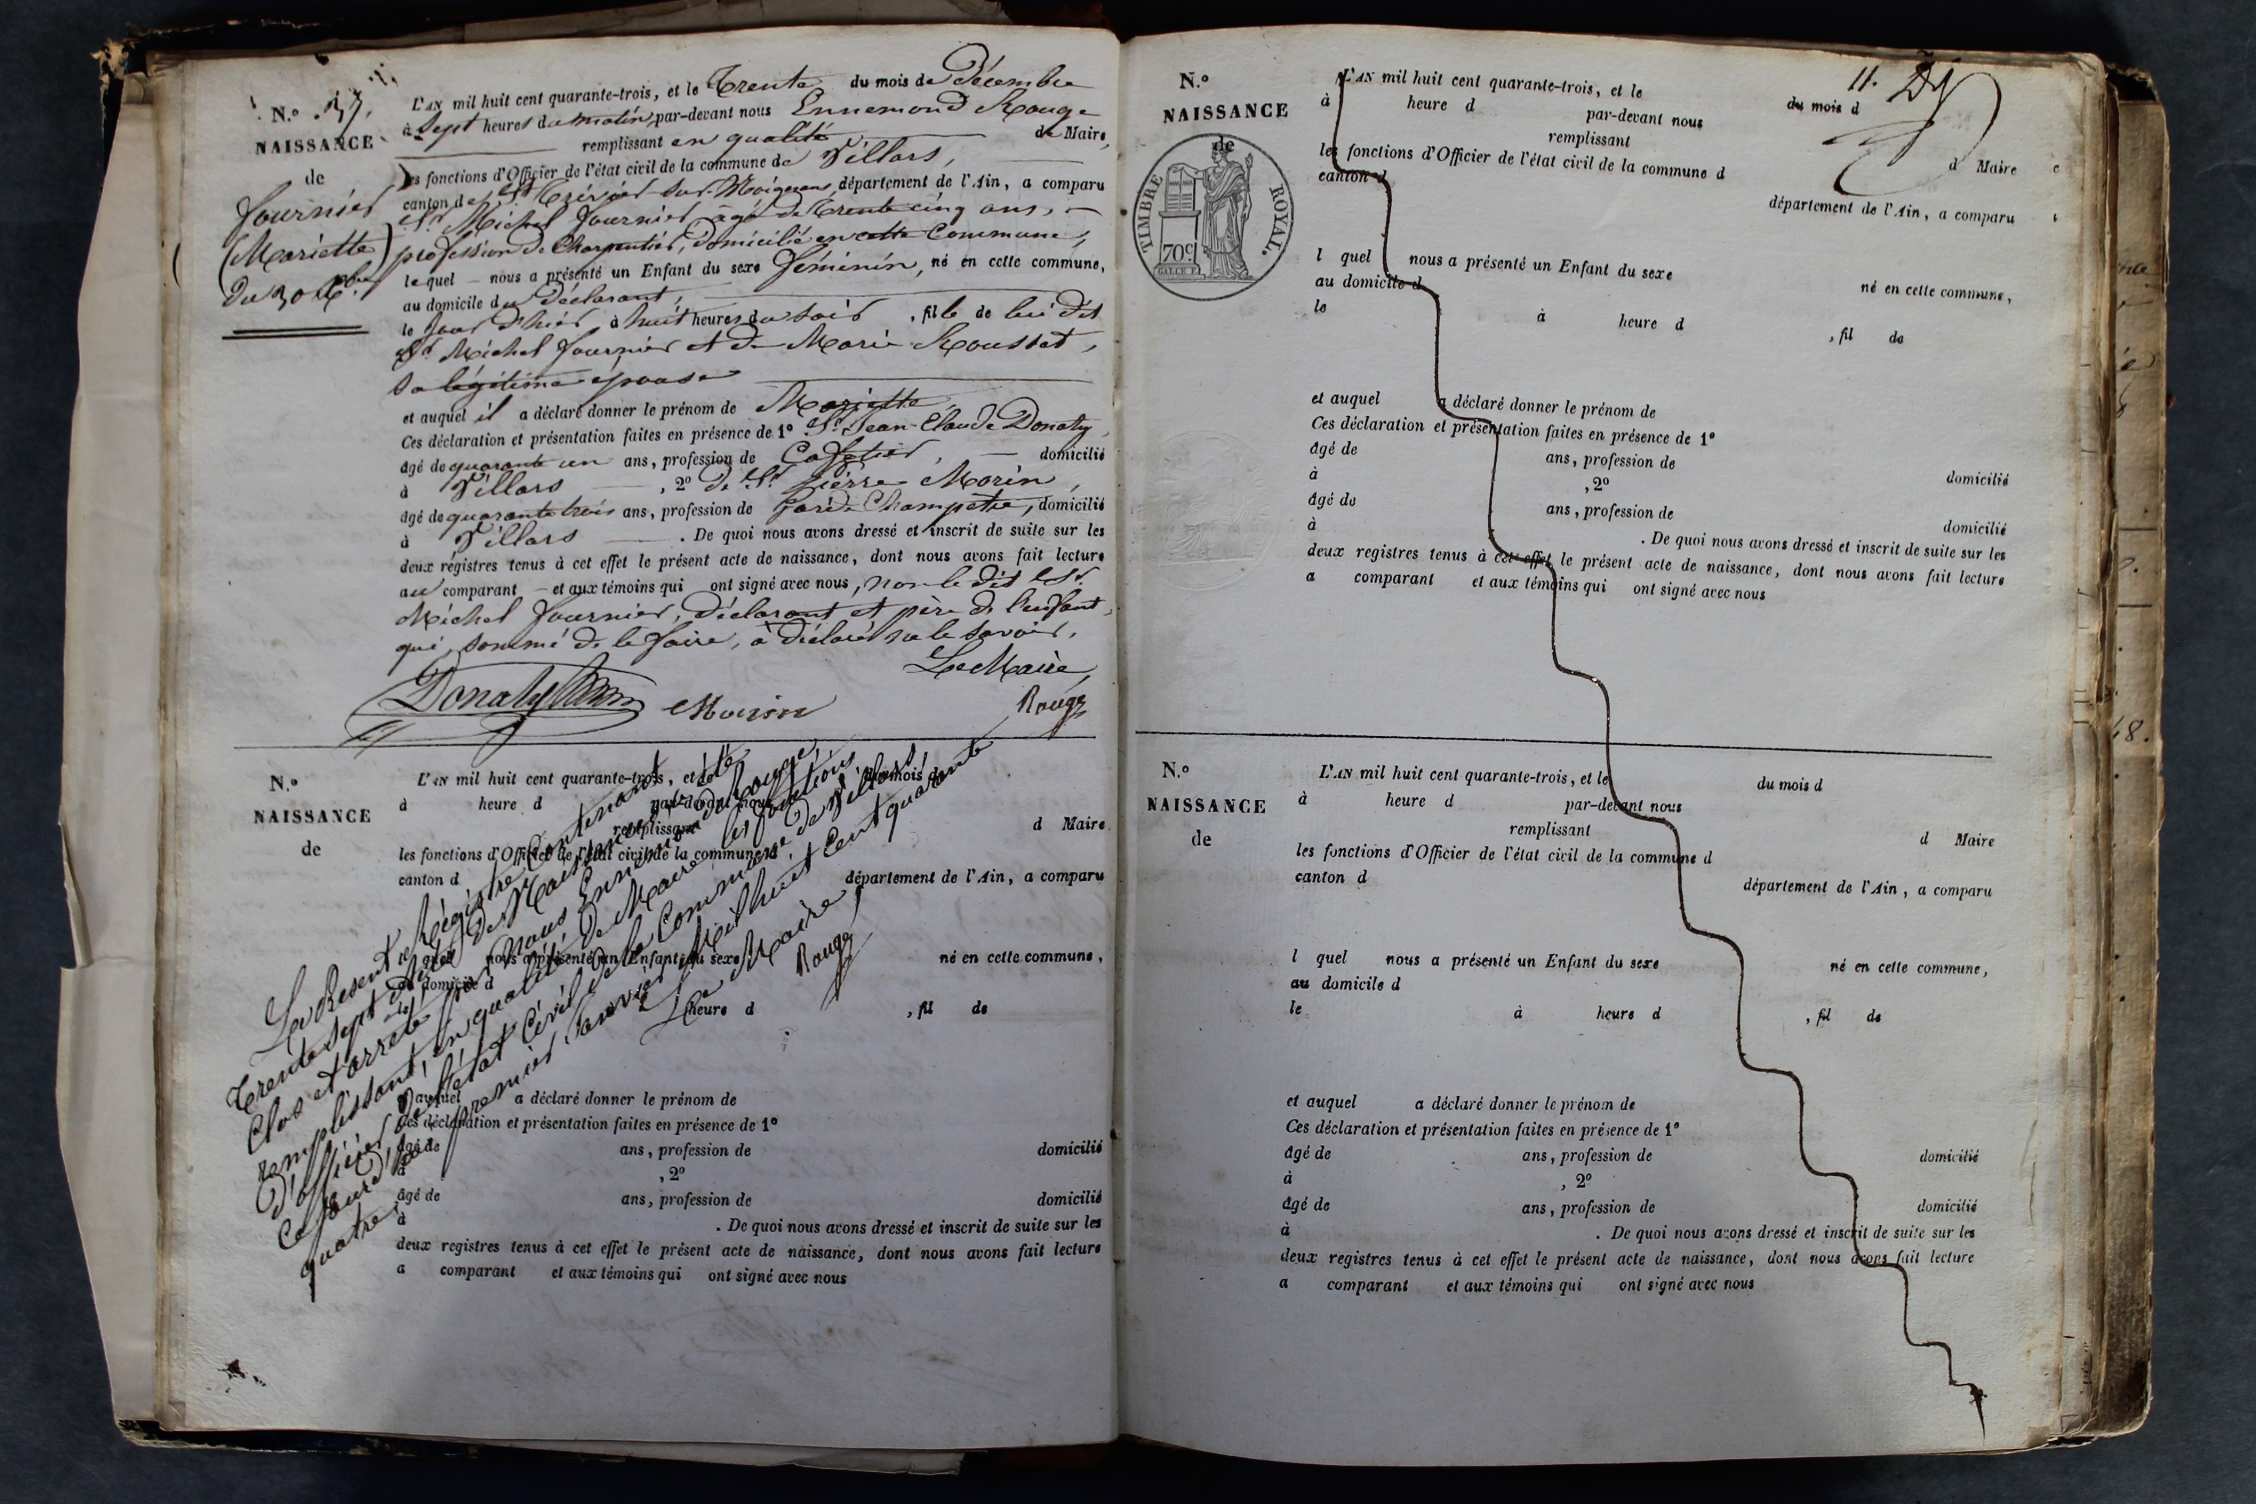 N.º 37.
NAISSANCE
de
Fournier
(Mariette)
du 30 Xbre
L'AN mil huit cent quarante-trois, et le Trente du mois de Décembre
à Sept heures du matin, par-devant nous Ennemond Rouge
remplissant en qualité de Maire,
les fonctions d'Officier de l'état civil de la commune de Villars,
canton de St. Trivier sur Moignans, département de l'Ain, a comparu
Sr. Michel Fournier âgé de Trente cinq ans,
profession de Charpentier, domicilié en cette Commune,
lequel nous a présenté un Enfant du sexe féminin, né en cette commune,
au domicile du Déclarant,
le Jour d'hier à huit heures du soir, fille de lui dit
Sr. Michel Fournier et de Marie Rousset,
sa légitime épouse
et auquel il a déclaré donner le prénom de Mariette
Ces déclaration et présentation faites en présence de 1º Sr. Jean-Claude Donaty,
âgé de quarante un ans, profession de Cafetier, domicilié
à Villars, 2º de Sr. Pierre Morin,
âgé de quarante trois ans, profession de Garde Champetre, domicilié
à Villars. De quoi nous avons dressé et inscrit de suite sur les
deux registres tenus à cet effet le présent acte de naissance, dont nous avons fait lecture
au comparant et aux témoins qui ont signé avec nous, non le dit Sr.
Michel Fournier, déclarant et père de l'enfant,
qui, sommé de le faire, a déclaré ne le savoir.
Le Maire,
Donaty Morin Rouge
N.º
NAISSANCE
de
L'AN mil huit cent quarante-trois, et le du mois d
à heure d par-devant nous
remplissant d Maire
les fonctions d'Officier de l'état civil de la commune d
canton d département de l'Ain, a comparu
l quel nous a présenté un Enfant du sexe né en cette commune,
au domicile d
heure d , fil de
et auquel a déclaré donner le prénom de
Ces déclaration et présentation faites en présence de 1º
âgé de ans, profession de domicilié
à , 2º
âgé de ans, profession de domicilié
à . De quoi nous avons dressé et inscrit de suite sur les
deux registres tenus à cet effet le présent acte de naissance, dont nous avons fait lecture
a comparant et aux témoins qui ont signé avec nous
Le Présent Régistre Contenant
Trente sept Actes de Naissances, a été
Clos et arrêté par Nous Ennemond Rouge
remplissant, en qualité de Maire les fonctions
d'officier de l'état Civil de la Commune de Villars,
Ce Jourd'hui premier Janvier Mil huit Cent quarante
quatre.
Le Maire,
Rouge
11.
N.º
NAISSANCE
de
TIMBRE ROYAL.
70c.
L'AN mil huit cent quarante-trois, et le du mois d
à heure d par-devant nous
remplissant d Maire
les fonctions d'Officier de l'état civil de la commune d
canton d département de l'Ain, a comparu
l quel nous a présenté un Enfant du sexe né en cette commune,
au domicile d
le à heure d , fil de
et auquel a déclaré donner le prénom de
Ces déclaration et présentation faites en présence de 1º
âgé de ans, profession de domicilié
à , 2º
âgé de ans, profession de domicilié
à . De quoi nous avons dressé et inscrit de suite sur les
deux registres tenus à cet effet le présent acte de naissance, dont nous avons fait lecture
a comparant et aux témoins qui ont signé avec nous
N.º
NAISSANCE
de
L'AN mil huit cent quarante-trois, et le du mois d
à heure d par-devant nous
remplissant d Maire
les fonctions d'Officier de l'état civil de la commune d
canton d département de l'Ain, a comparu
l quel nous a présenté un Enfant du sexe né en cette commune,
au domicile d
le à heure d , fil de
et auquel a déclaré donner le prénom de
Ces déclaration et présentation faites en présence de 1º
âgé de ans, profession de domicilié
à , 2º
âgé de ans, profession de domicilié
à . De quoi nous avons dressé et inscrit de suite sur les
deux registres tenus à cet effet le présent acte de naissance, dont nous avons fait lecture
a comparant et aux témoins qui ont signé avec nous